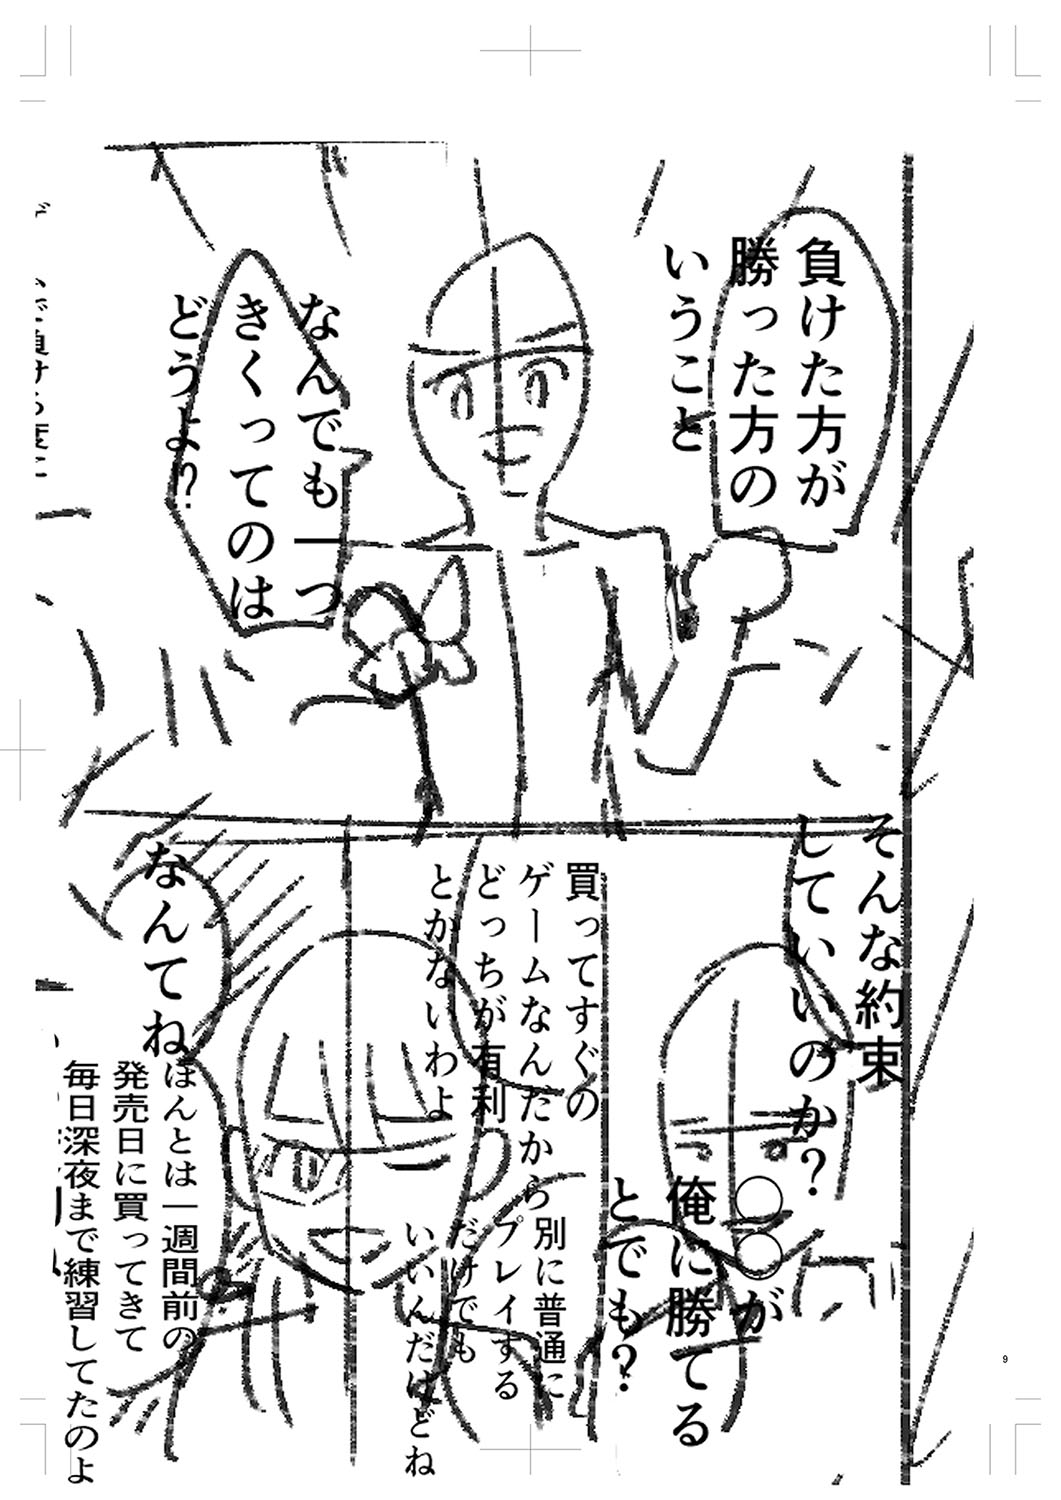 負けた方が
勝った方の
いうこと
なんでも一つ
きくってのは
どうよ!?
そんな約束
していいのか？
〇〇が
俺に勝てる
とでも？
買ってすぐの
ゲームなんだから
どっちが有利
とかないわよ
別に普通に
プレイする
だけでも
いいんだけどね
なんてね
ほんとは一週間前の
発売日に買ってきて
毎日深夜まで練習してたのよ
9